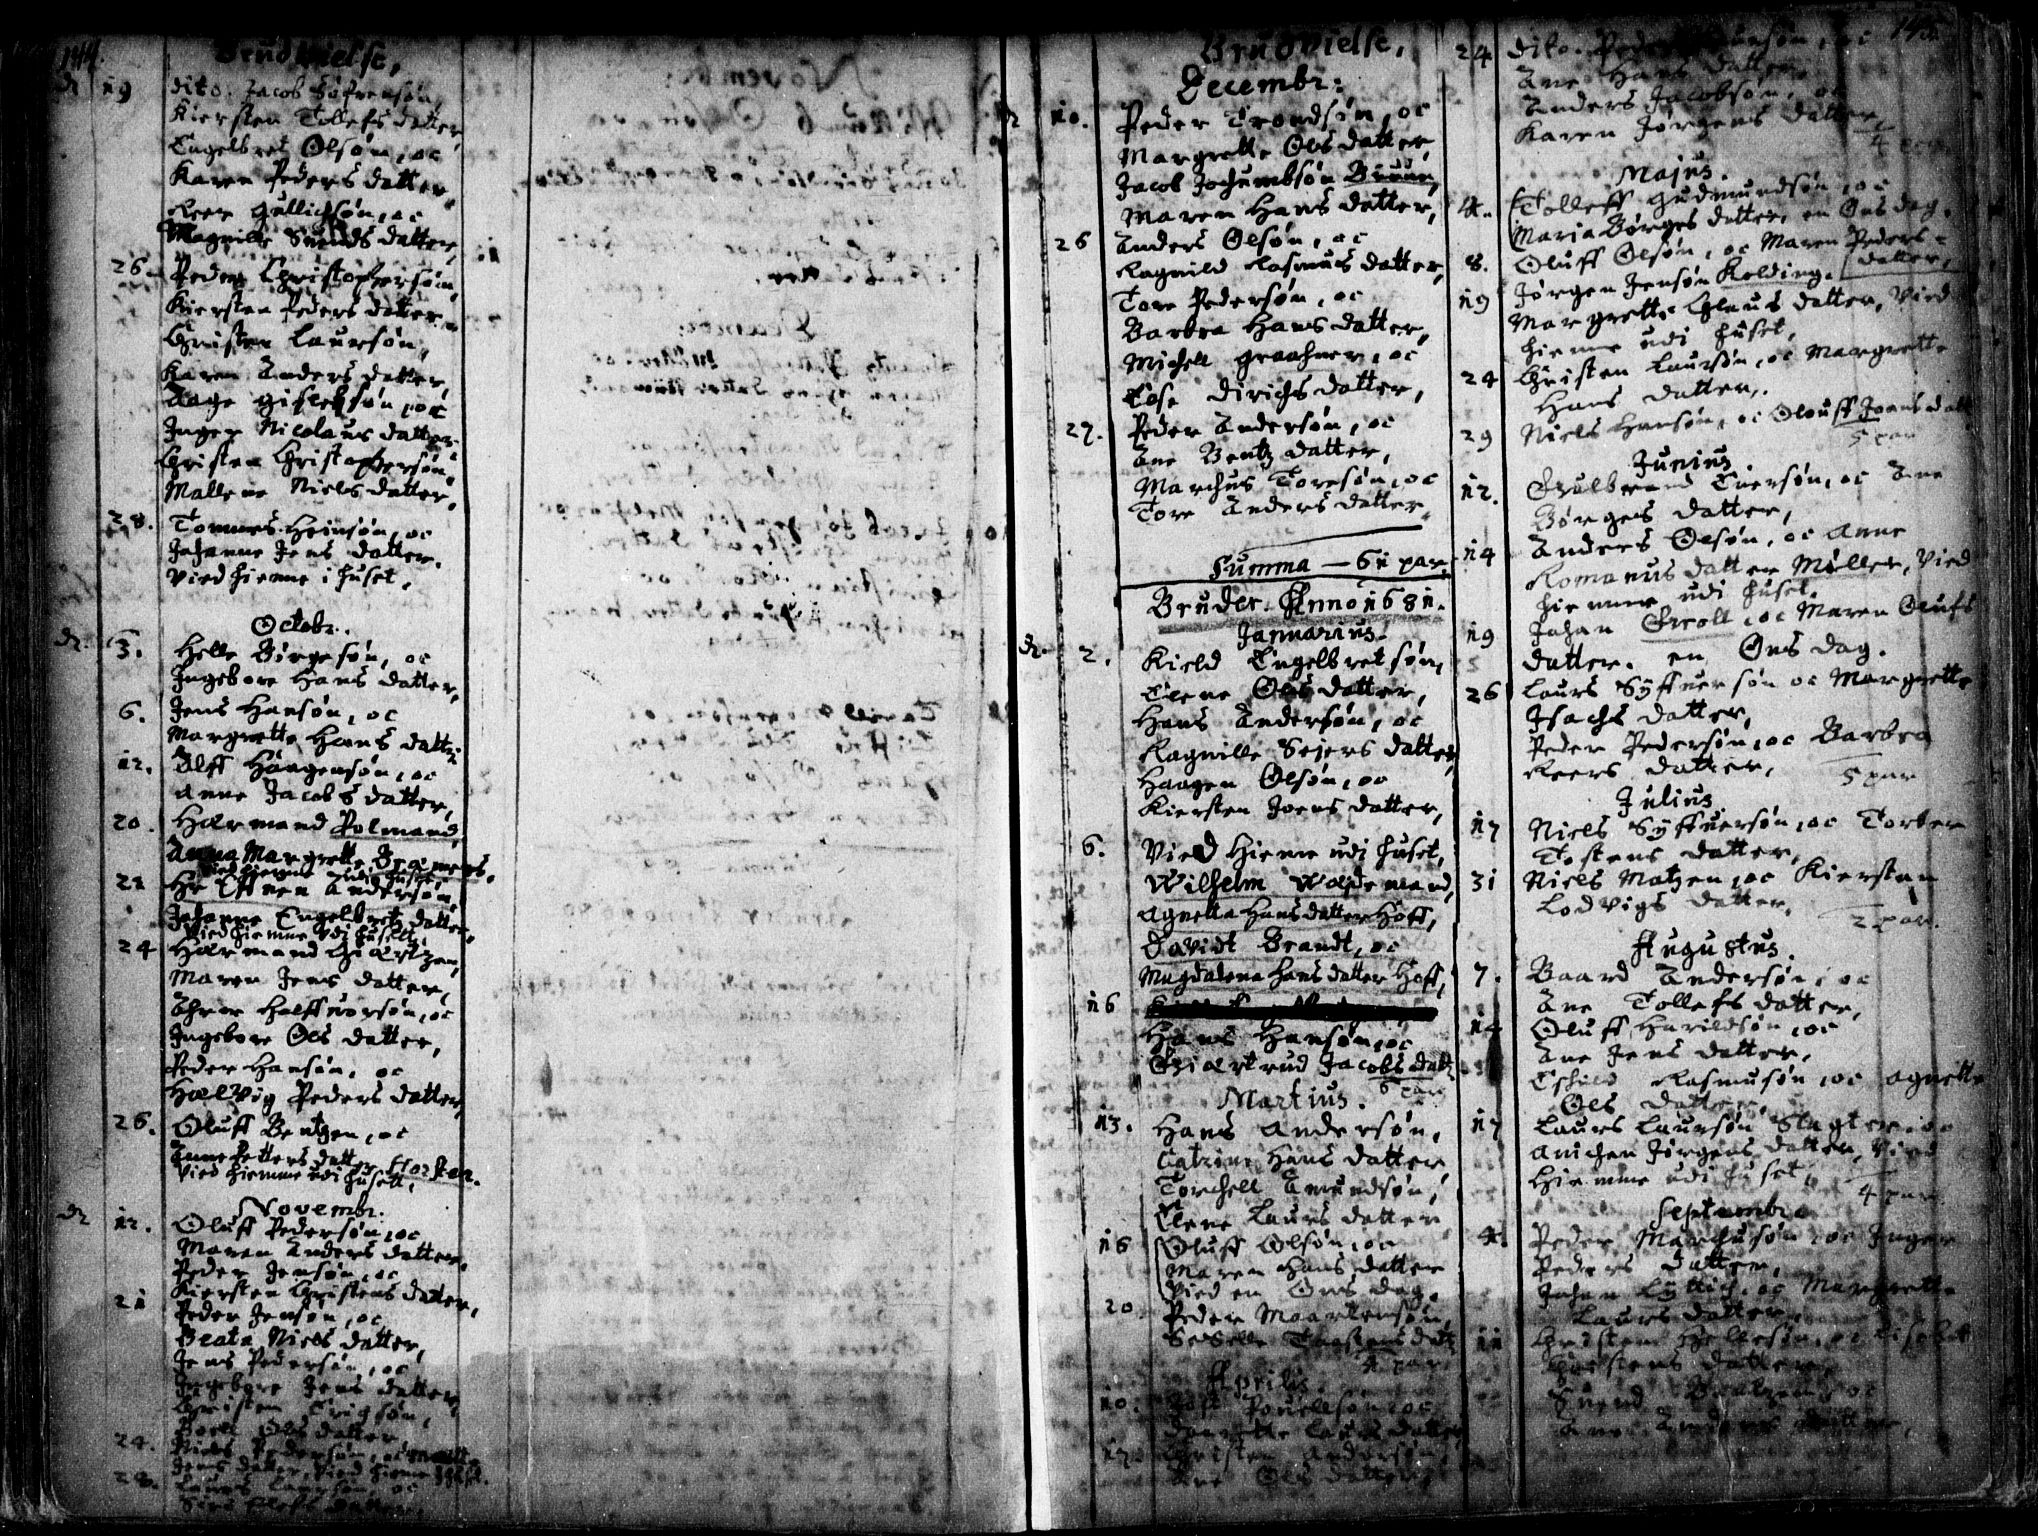 144.
Brudvielse,
d 19 dito. Jacob Søfrensøn,
Kiersten Tollefs datter,
Engelbret Olsøn, oc
Karen Peders datter,
Peer Gullichsøn, oc
Magnille Svends datter,
26. Peder Christophersøn,
Kiersten Peders datter,
Christen Laursøn,
Karen Anders datter,
Aage Gislefsøn, oc
Inger Nicolaus datter,
Christen Christophersøn,
Mallene Niels datter,
28. Tommes Heinsøn, oc
Johanne Jens datter.
vied hiemme i huset.
Octobr.
d. 3. Helle Børgesøn, oc
Ingebore Hans datter,
6. Jens Hansøn, oc
Margrette Hans datter
12. Olff Haagensøn, oc
Anne Jacobs datter,
20. Harmend Polmand,
Anna Margrette
vied hiemme udi huset.
22 Hr Efven Andersøn,
Johanne Engelbretz datter,
vied hiemme udi husett.
24 Harmend Giertzen,
Maren Jens datter,
Halffvorsøn, oc
Ingebore Ols datter,
Peder Hansøn, oc
Hælvig Peders datter,
26. Oluff Bentzen, oc
Anne Petters datter
vied hiemme udi husett.
Novembr.
d 12. Oluff Pedersøn, oc
Maren Anders datter.
Peder Jensøn, oc
Kiersten Christens datter,
21 Peder Jensøn, oc
Beata Niels datter,
Jens Pedersøn, oc
Ingebore Jens datter,
Christen Erichsøn,
Boell Ols datter
24. Niels Pedersøn, oc
Jens datter, vied hieme
28. Laurs Laursøn, oc
datter.
Brudvielse,
Decembr:
d 10. Peder Trondsøn, oc
Margrette Ols datter
Jacob Jochumbsøn Bruun,
Maren Hans datter,
26 Anders Olsøn, oc
Ragnild Rasmus datter,
Tore Pedersøn, oc
Barbra Hans datter,
Michell Graahner, oc
Else Dirichs datter,
27. Peder Andersøn, oc
Ane Bentz datter,
Marchus Toresøn, oc
Tore Anders datter,
Summa — 61 par.
Bruder Anno 1681.
Januarius.
d. 2. Kield Engelbretsøn,
Elene Ols datter,
Hans Andersøn, oc
Ragnille Sejers datter,
Haagen Olsøn, oc
Kiersten Joens datter,
6. Vied Hieme udi huset,
Wilhelm Woldemand,
Agnetta Hans datter Hoff,
Davidt Brandt, oc
Magdalena Hans datter Hoff,
16
Hans Hansøn, oc
Giertrud Jacobs datt
6 par
Martius.
13. Hans Andersøn,
Catrine Hans datter
Torchell Amundsøn,
Elene Laurs datter
16 Oluff Olsøn, oc
Maren Hans datter
Vied en Ons dag.
20 Peder Maartensøn,
Sidselle Torstens datt
4 par
Aprilis.
10. Povelsøn, oc
Laurs datter,
17. Christen Andersøn,
Ane Ols datter,
145.
24 dito. Peder Laursøn, oc
Ane Hans datter,
Anders Jacobsøn, oc
Karen Jørgens datter,
4 par.
Majus.
4. Tolleff Gudmundsøn, oc
Maria Børges datter, en Ons dag.
8. Oluff Olsøn, oc Maren Peders=
datter,
19 Jørgen Jensøn Kolding.
Margrette Claus datter, vied
hieme udi huset,
24 Christen Laursøn, oc Margrette
Hans datter,
29 Niels Hansøn, oc Oluff Joens datt
5 par
Junius.
12. Gulbrand Iversøn, oc Ane
Børges datter,
14 Anders Olsøn, oc Anne
Romanus datter Møller, vied
hiemme udi huset.
19 Johan Groll, oc Maren Olufs
datter. en Ons dag.
26 Laurs Syffuersøn oc Margrette
Isachs datter,
Peder Pedersøn, oc Barbra
Peers datter,
5 par
Julius
17 Niels Syffuersøn, oc Torber
Tostens datter,
31 Niels Matzen, oc Kiersten
Lodvigs datter,
2 par.
Augustus.
7. Baard Andersøn, oc
Ane Tollefs datter,
14 Oluff Harildsøn, oc
Ane Jens datter,
Eschild Rasmusøn, oc Agnette
Ols datter
17 Laurs Laursøn Slagter, oc
Anichen Jørgens datter, vied
Hiemme udi huset,
4 par
Septembr.
4. Peder Marchusøn, oc Inger
Peders datter,
Johan Lyttich, oc Margrette
Laurs datter,
11 Christen Pellesøn, oc
datter,
Svend
Ane Anders datter,